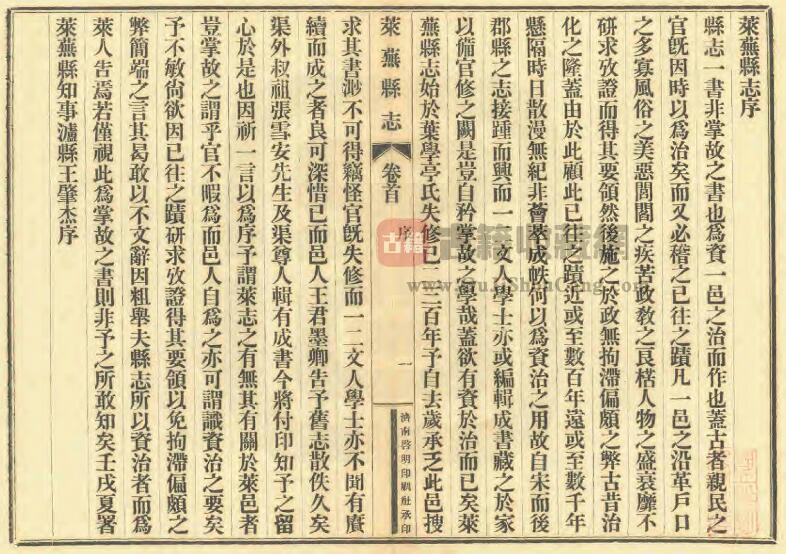 萊蕪縣志序
縣志一書非掌故之書也爲資一邑之治而作也蓋古者親民之
官旣因時以爲治矣而又必稽之已往之蹟凡一邑之沿革戶口
之多寡風俗之美惡閭閻之疾苦政敎之良楛人物之盛衰靡不
硏求攷證而得其要領然後施之於政無拘滯偏頗之弊古昔治
化之隆蓋由於此顧此已往之蹟近或至數百年遠或至數千年
懸隔時日散漫無紀非薈萃成帙何以爲資治之用故自宋而後
郡縣之志接踵而興而一二文人學士亦或編輯成書藏之於家
以備官修之闕是豈自矜掌故之學哉蓋欲有資於治而已矣萊
蕪縣志始於葉學亭氏失修已二三百年予自去歲承乏此邑搜
萊蕪縣志
卷首
序
一
濟南啓明印刷社承印
求其書渺不可得竊怪官旣失修而一二文人學士亦不聞有廣
續而成之者良可深惜已而邑人王君墨卿告予舊志散佚久矣
渠外叔祖張雪安先生及渠尊人輯有成書今將付印知予之留
心於是也因祈一言以爲序予謂萊志之有無其有關於萊邑者
豈掌故之謂乎官不暇爲而邑人自爲之亦可謂識資治之要矣
予不敏尙欲因已往之蹟硏求攷證得其要領以免拘滯偏頗之
弊簡端之言其曷敢以不文辭因粗舉夫縣志所以資治者而爲
萊人告焉若僅視此爲掌故之書則非予之所敢知矣壬戌夏署
萊蕪縣知事瀘縣王肇杰序
古籍
古籍收藏網
www.GuJiShouCang.com